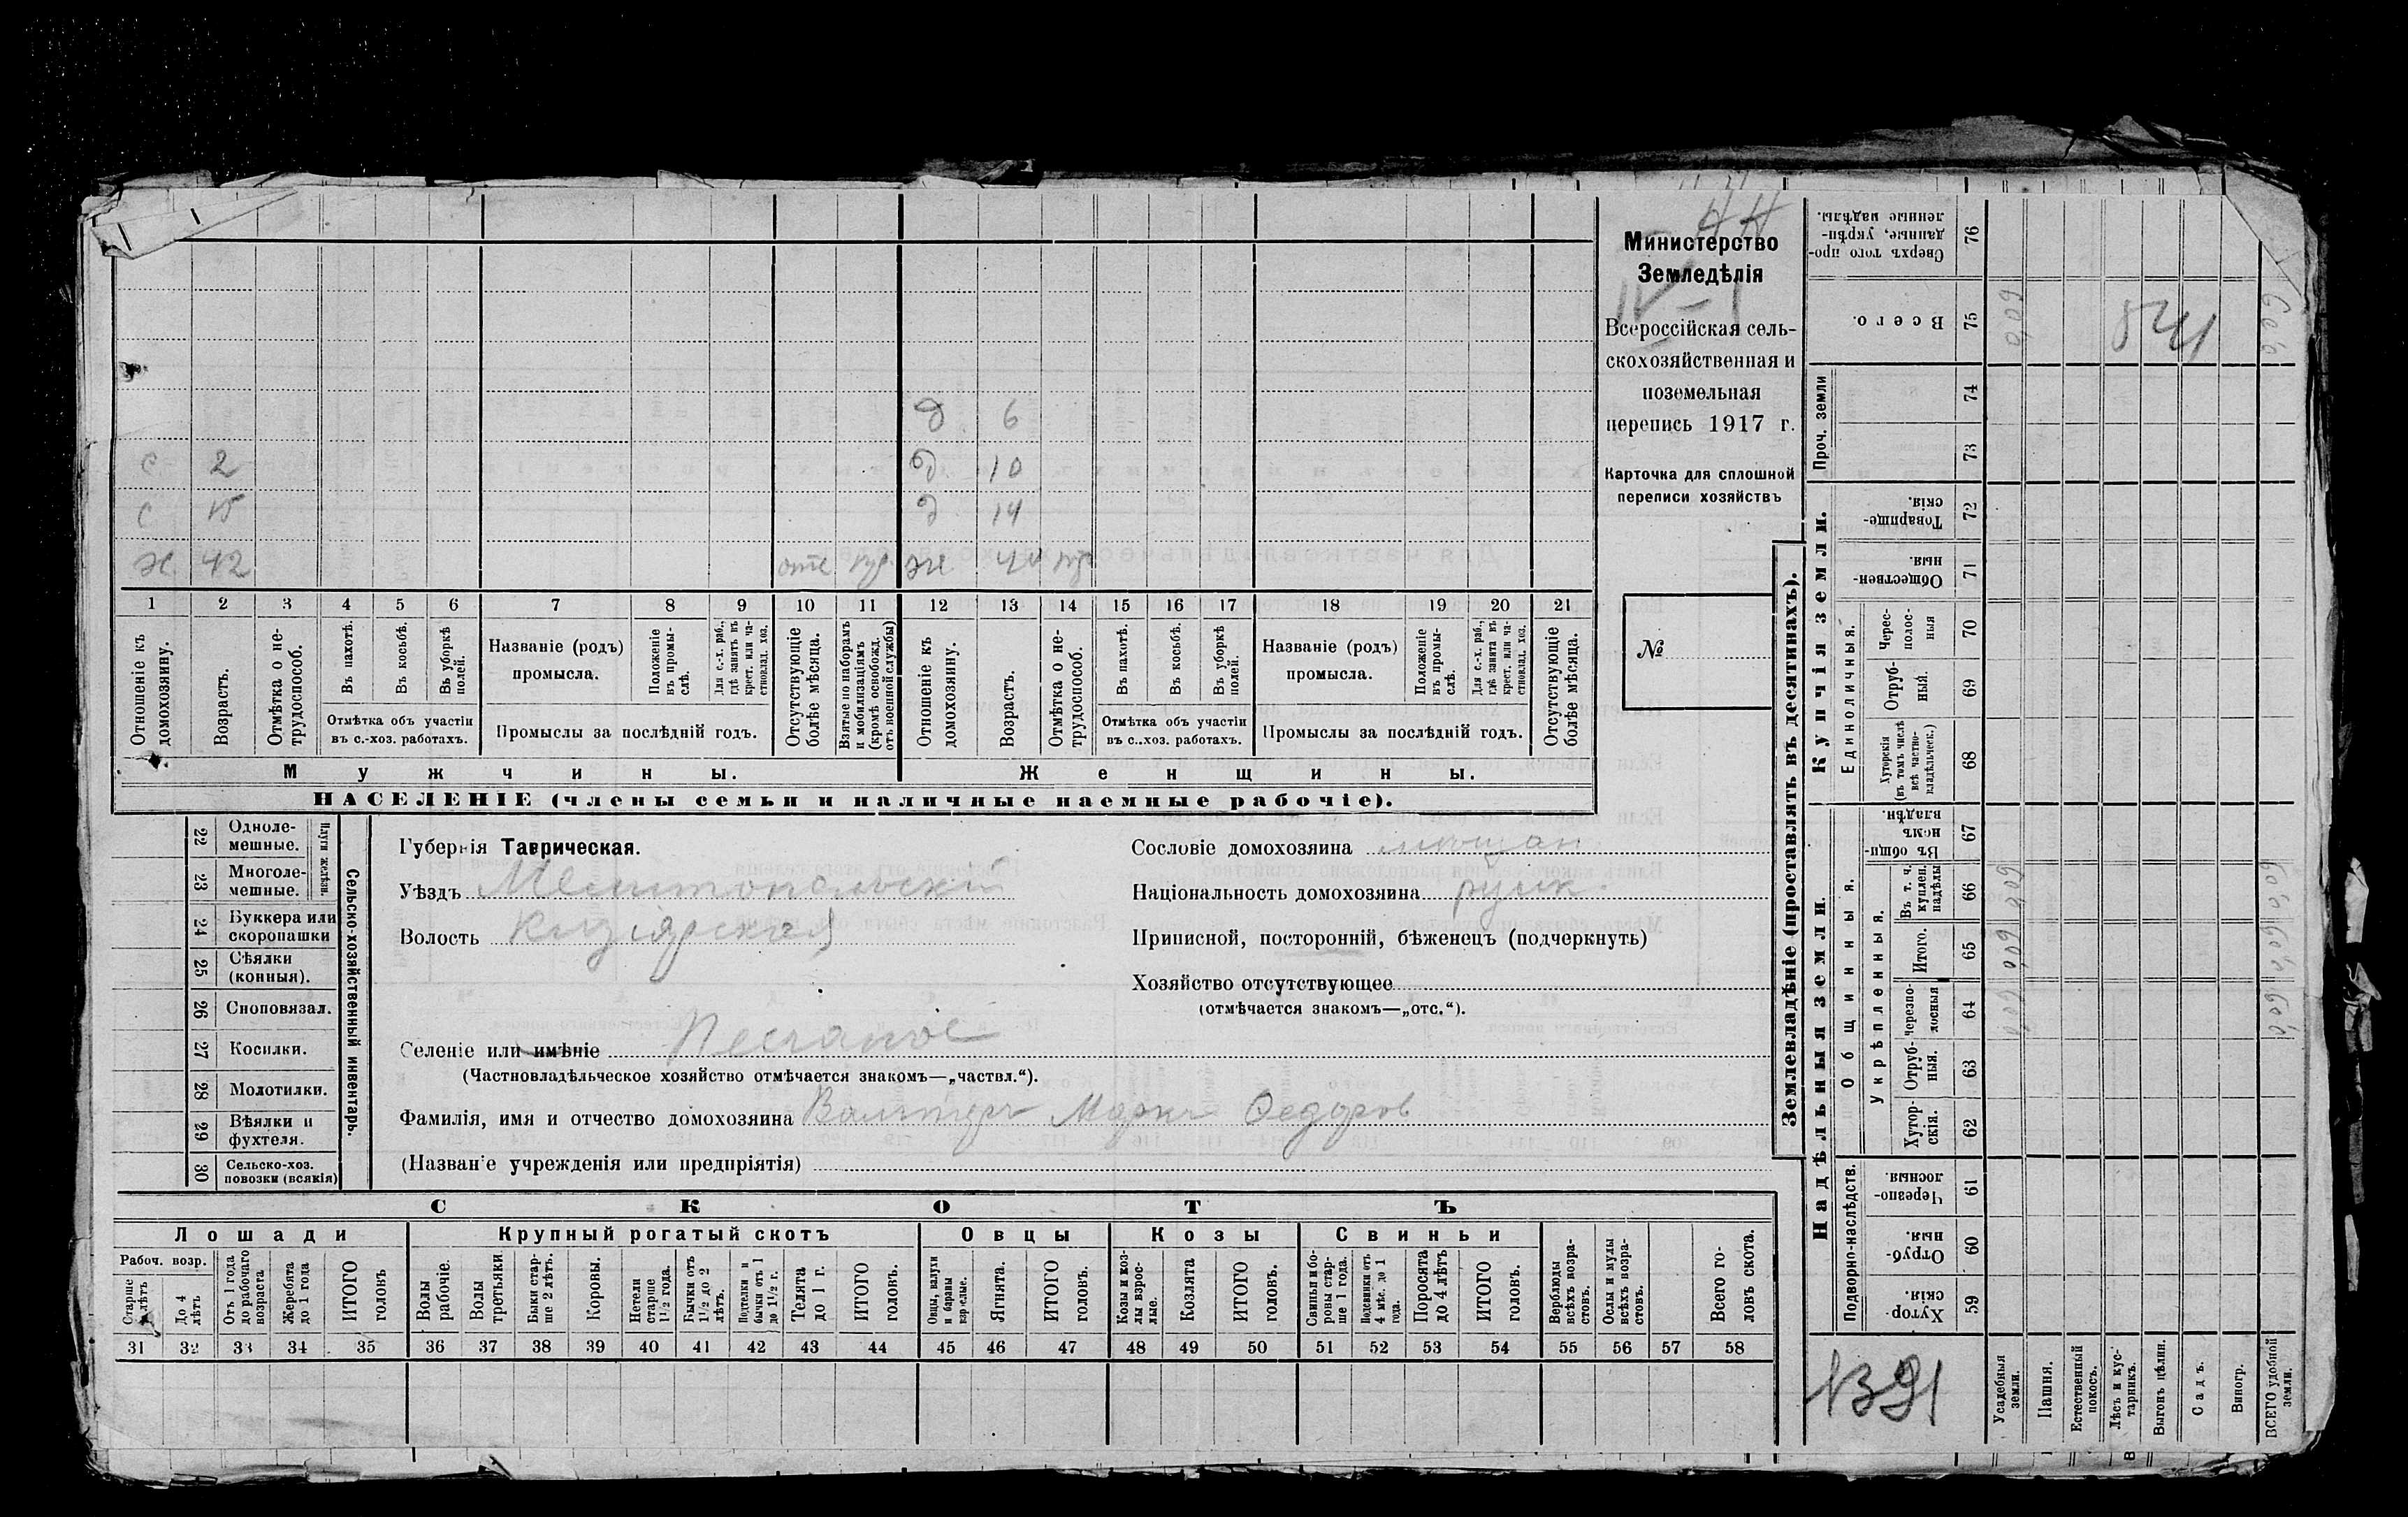 Министерство
Земледѣлія
IV-1
Всероссійская сель-
скохозяйственная и
поземельная
перепись 1917 г.
Карточка для сплошной
переписи хозяйствъ
№
д 6
с 2 д 10
с 15 д 14
х 42 отс ж
1 2 3 4 5 6 7 8 9 10 11 12 13 14 15 16 17 18 19 20 21
Отношеніе къ домохозяину.
Возрастъ.
Отмѣтка о не-трудоспособ.
Въ пахотѣ.
Въ косьбѣ.
Въ уборкѣ полей.
Отмѣтка объ участіи
въ с.-хоз. работахъ.
Названіе (родъ)
промысла.
Положеніе въ промы-слѣ.
Для с.-х. раб., гдѣ занятъ въ крест. или ча-ствовлад. хоз.
Промыслы за послѣдній годъ.
Отсутствующіе болѣе мѣсяца.
Взятые по наборамъ и мобилизаціямъ (кромѣ освобожд. отъ военной службы)
Отношеніе къ домохозяину.
Возрастъ.
Отмѣтка о не-трудоспособ.
Въ пахотѣ.
Въ косьбѣ.
Въ уборкѣ полей.
Отмѣтка объ участіи
въ с..хоз. работахъ.
Названіе (родъ)
промысла.
Положеніе въ промы-слѣ.
Для с.-х. раб., гдѣ занята въ крест. или ча-ствовлад. хоз.
Промыслы за послѣдній годъ.
Отсутствующіе болѣе мѣсяца.
Мужчины. Женщины.
НАСЕЛЕНІЕ (члены семьи и наличные наемные рабочіе).
Сельско-хозяйственный инвентарь.
Плуги желѣзн.
22 Одноле-мешные.
23 Многоле-мешные.
24 Буккера или скоропашки
25 Сѣялки (конныя).
26 Сноповязал.
27 Косилки.
28 Молотилки.
29 Вѣялки и фухтеля.
30 Сельско-хоз. повозки (всякія)
Губернія Таврическая.
Уѣздъ Мелитопольскій
Волость Кизіярская
Селеніе или имѣніе Песчаное
(Частновладѣльческое хозяйство отмѣчается знакомъ—„частвл.“).
Фамилія, имя и отчество домохозяина Марк Федоров
(Названіе учрежденія или предпріятія)
Сословіе домохозяина мещан
Національность домохозяина русск.
Приписной, посторонній, бѣженецъ (подчеркнуть)
Хозяйство отсутствующее
(отмѣчается знакомъ—„отс.“).
СКОТЪ
Лошади Крупный рогатый скотъ Овцы Козы Свиньи
Рабоч. возр.
Старше 4 лѣтъ
До 4 лѣтъ
Отъ 1 года до рабочаго возраста
Жеребята до 1 года
ИТОГО головъ
Волы рабочіе.
Волы третьяки
Быки стар-ше 2 лѣтъ.
Коровы.
Нетели старше 1½ года.
Бычки отъ 1½ до 2 лѣтъ.
Подтелки и бычки отъ 1 до 1½ г.
Телята до 1 г.
ИТОГО головъ.
Овцы, валухи и бараны взрослые.
Ягнята.
ИТОГО головъ.
Козы и коз-лы взрос-лые.
Козлята
ИТОГО головъ.
Свиньи и бо-ровы стар-ше 1 года.
Подсвинки отъ 4 мѣс. до 1 года.
Поросята до 4 лѣтъ
ИТОГО головъ.
Верблюды всѣхъ возра-стовъ.
Ослы и мулы всѣхъ возра-стовъ.
Всего го-ловъ скота.
31 32 33 34 35 36 37 38 39 40 41 42 43 44 45 46 47 48 49 50 51 52 53 54 55 56 57 58
Землевладѣніе (проставлять въ десятинахъ).
Надѣльныя земли. Купчія земли. Проч. земли
Подворно-наслѣдств.
Общинныя.
Укрѣпленныя.
Единоличныя.
Сверхъ того про-данные, укрѣп-ленные надѣлы. 76
Всего. 75
74
73
Товарище-скія. 72
Обществен-ныя. 71
Черес-полос-ныя 70
Отруб-ныя. 69
Хуторскія (въ томъ числѣ всѣ частно-владѣльческ.) 68
Въ общин-номъ владѣн. 67
Въ т. ч. куплен. надѣлы 66
Итого. 65
Черезпо-лосныя 64
Отруб-ныя. 63
Хутор-скія. 62
Черезпо-лосныя 61
Отруб-ныя. 60
Хутор-скія. 59
Усадебныя земли.
Пашня.
Естественный покосъ.
Лѣсъ и кус-тарникъ.
Выгонъ цѣлин.
Садъ.
Виногр.
ВСЕГО удобной земли.
1391